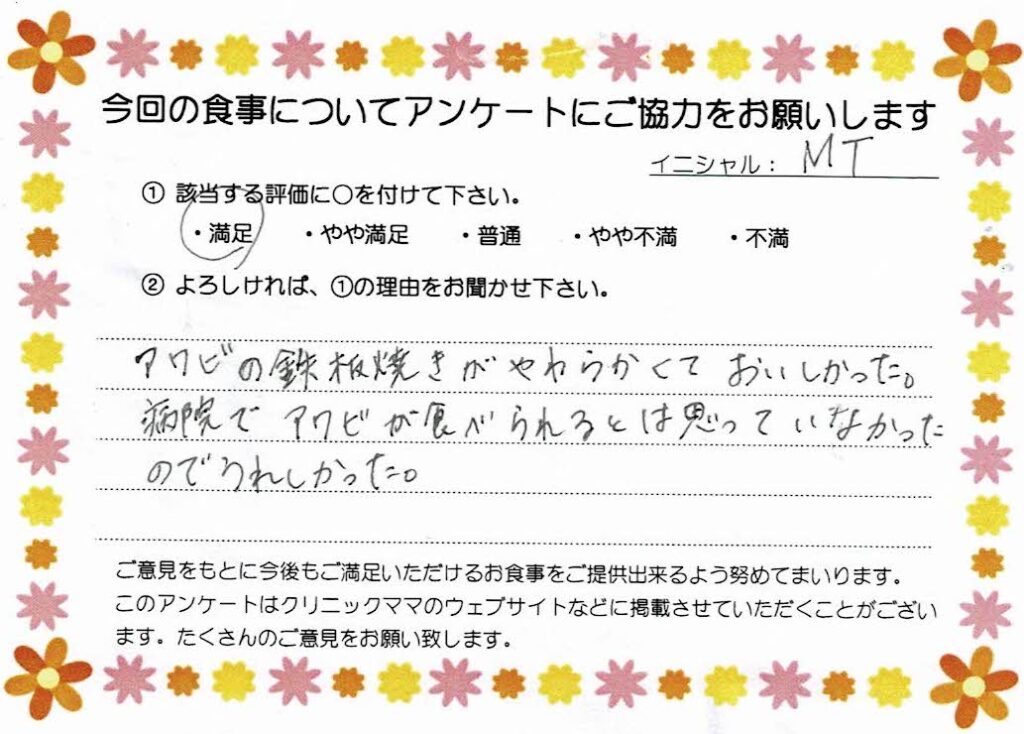 今回の食事についてアンケートにご協力をお願いします
イニシャル： MT
① 該当する評価に○を付けて下さい。
・満足 ・やや満足 ・普通 ・やや不満 ・不満
② よろしければ、①の理由をお聞かせ下さい。
アワビの鉄板焼きがやわらかくておいしかった。
病院でアワビが食べられるとは思っていなかった
のでうれしかった。
ご意見をもとに今後もご満足いただけるお食事をご提供出来るよう努めてまいります。
このアンケートはクリニックママのウェブサイトなどに掲載させていただくことがござい
ます。たくさんのご意見をお願い致します。